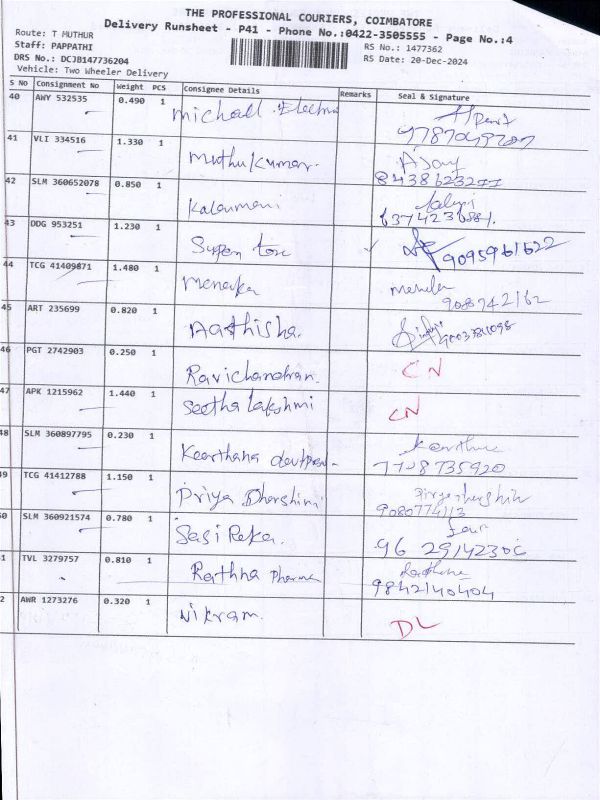 THE PROFESSIONAL COURIERS, COIMBATORE
Delivery Runsheet - P41 - Phone No.:0422-3505555 - Page No.:4
Route: T MUTHUR
Staff: PAPPATHI
DRS No.: DCJB147736204
Vehicle: Two Wheeler Delivery
RS No.: 1477362
RS Date: 20-Dec-2024
S No Consignment No Weight PCS Consignee Details Remarks Seal & Signature
40 AWY 532535 0.490 1 michall
41 VLI 334516 1.330 1 muthukumar. Ajay
8438623277
42 SLM 360652078 0.850 1
6374236881.
43 DDG 953251 1.230 1 9095961622
44 TCG 41409871 1.480 1 menaka
9088742162
45 ART 235699 0.820 1 Aathisha.
46 PGT 2742903 0.250 1 Ravichandran. CN
47 APK 1215962 1.440 1 Seetha lakshmi CN
48 SLM 360897795 0.230 1 Keerthana
7708735920
49 TCG 41412788 1.150 1 Priya Dharshini
9080774113
50 SLM 360921574 0.780 1 Sasi Reka.
1 TVL 3279757 0.810 1 Rathna Pharma
9842140404
2 AWR 1273276 0.320 1 Vikram. DL